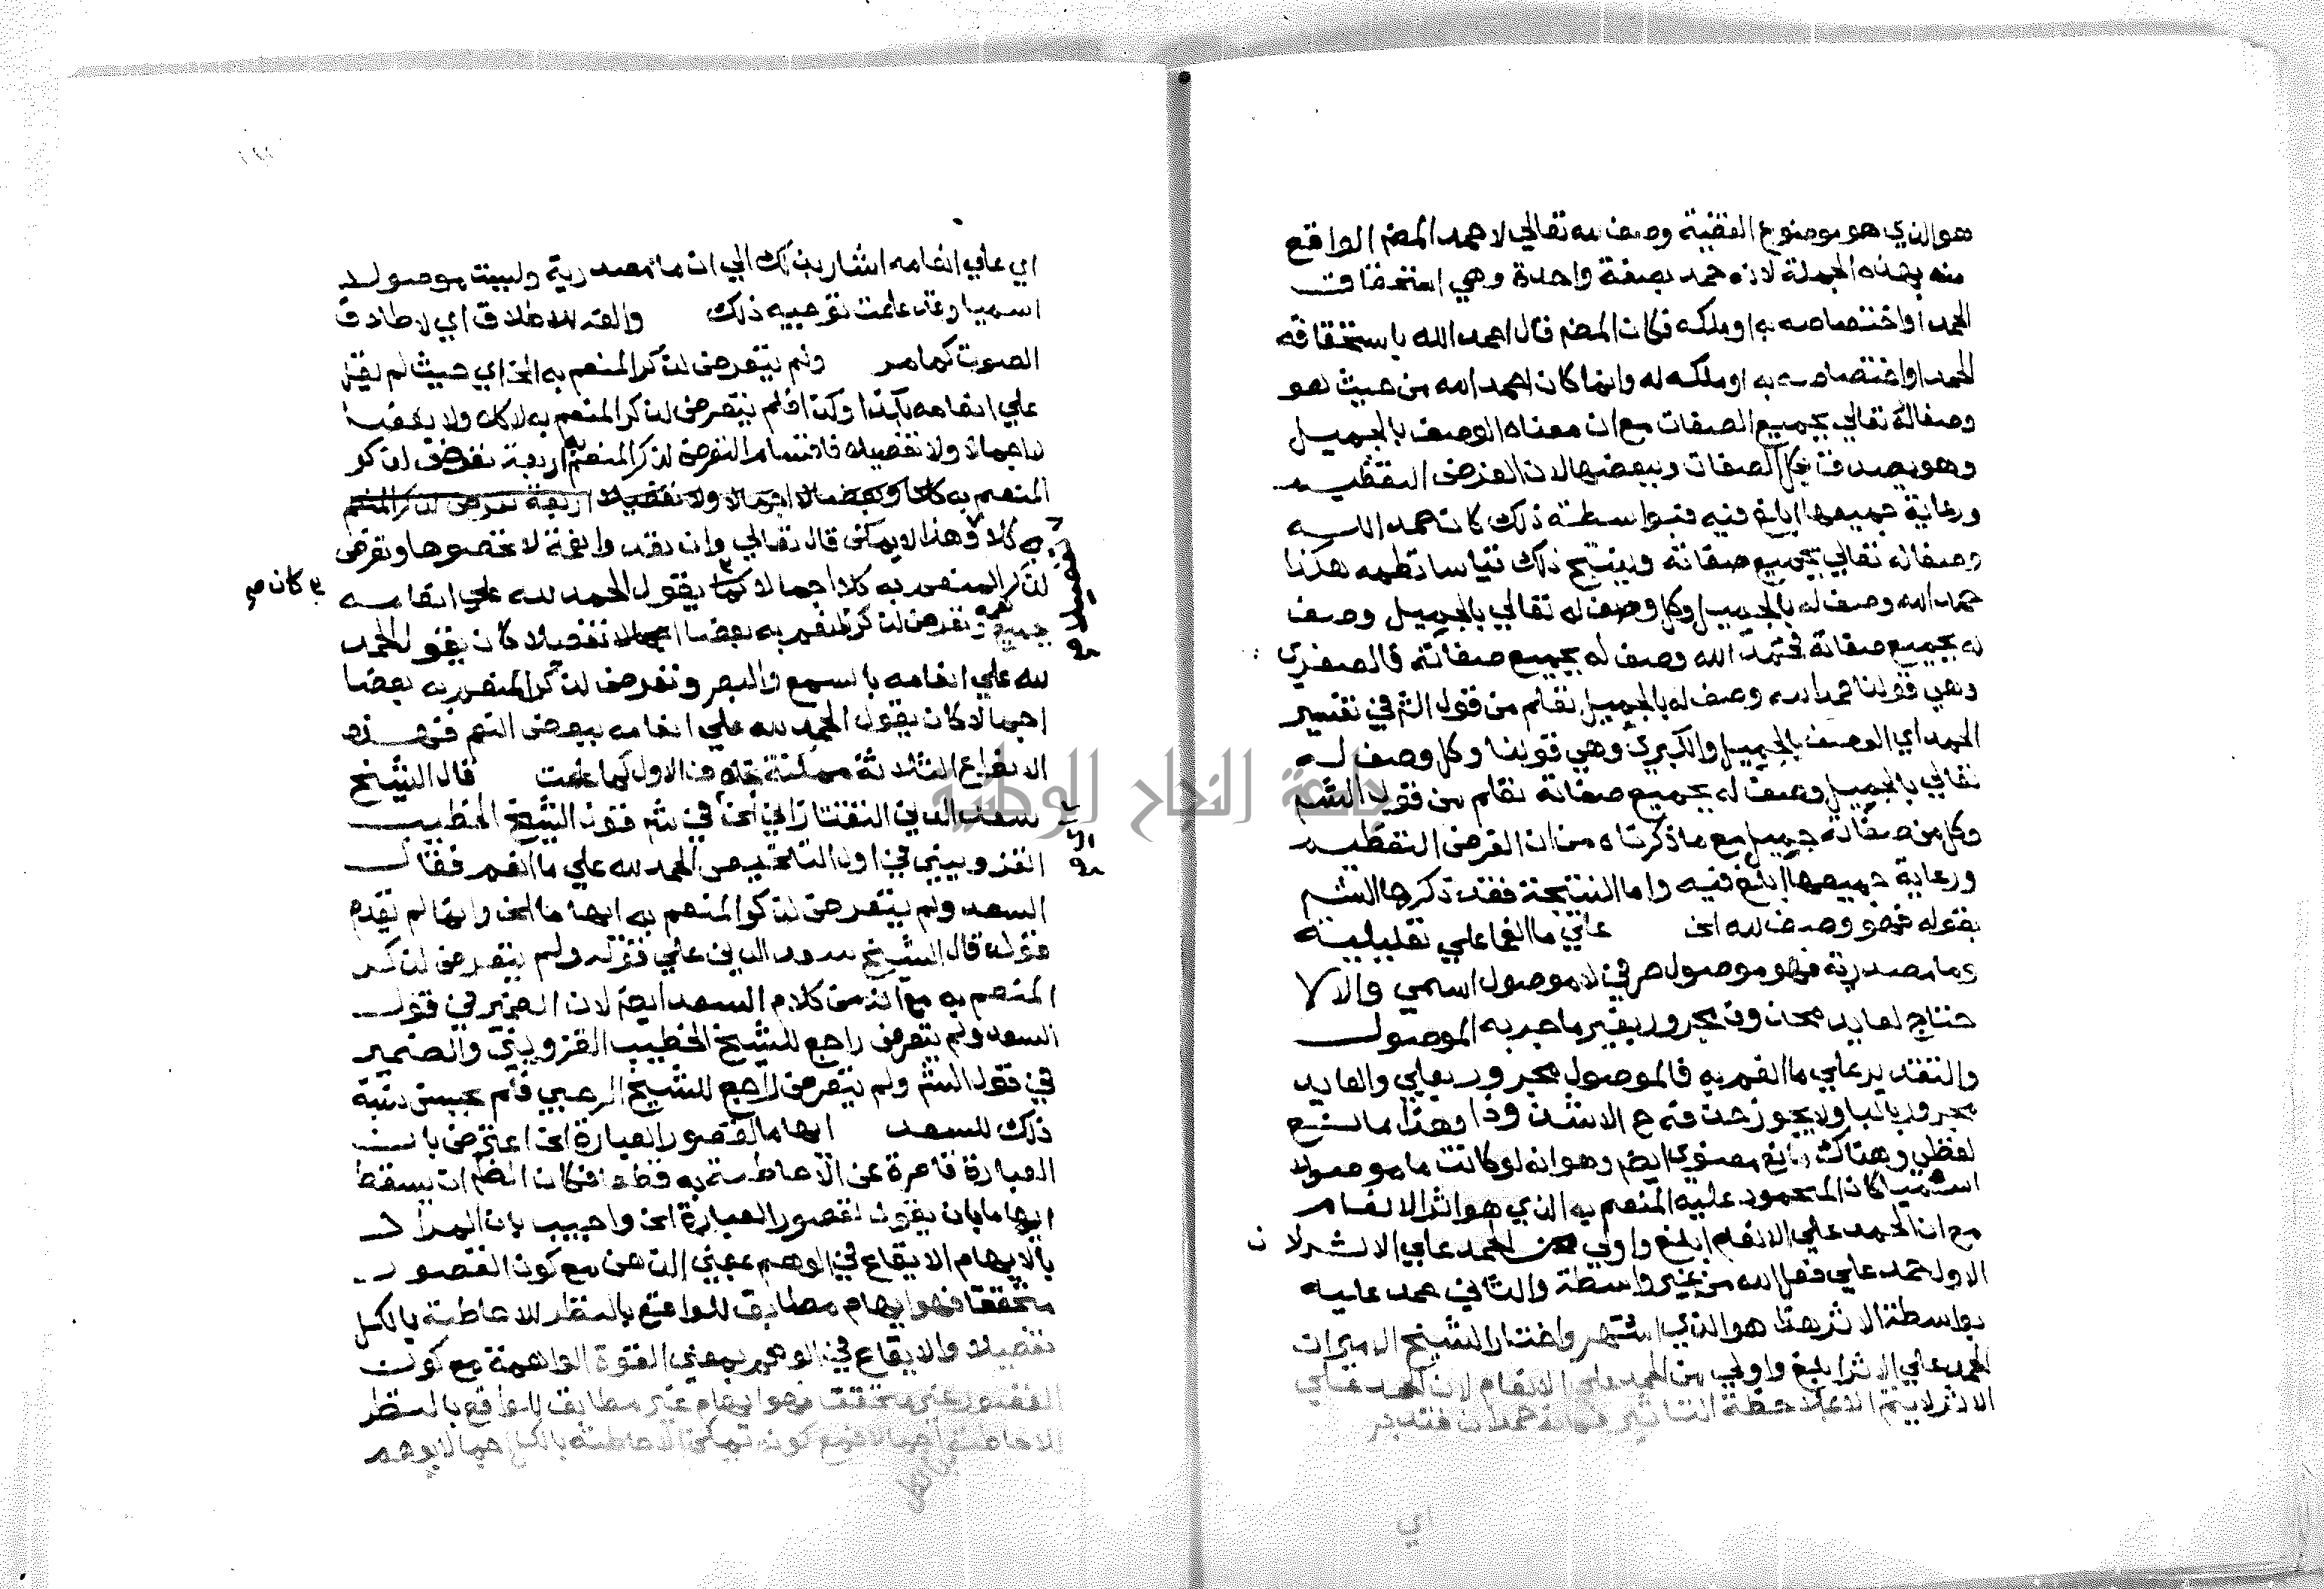 هو الذي هو موضوع القضية وصف لله تعالى لا حمد المض الواقع
منه بهذه الجملة لانه حمد بصفة واحدة وهي استحقاق
الحمد او اختصاصه به او ملكه فكان المض قال احمد الله باستحقاقه
الحمد او اختصاصه به او ملكه له وانما كان احمد الله من حيث هو
وصفا له تعالى بجميع الصفات مع ان معناه الوصف بالجميل
وهو يصدق بكل الصفات وببعضها لان الغرض التعظيم
ورعاية جميعها ابلغ فيه فبواسطة ذلك كان حمد الله
وصفا له تعالى بجميع صفاته وينتج ذلك قياسا نظمه هكذا
حمد الله وصف له بالجميل وكل وصف له تعالى بالجميل وصف
له بجميع صفاته فحمد الله وصف له بجميع صفاته فالصغرى
وهي قولنا حمد الله وصف له بالجميل تعلم من قول الش في تفسير
الحمد اي الوصف بالجميل والكبرى وهي قولنا وكل وصف له
تعالى بالجميل وصف له بجميع صفاته تعلم من قول الش
وكل من صفاته جميل مع ما ذكرناه من ان الغرض التعظيم
ورعاية جميعها ابلغ فيه واما النتيجة فقد ذكرها الش
بقوله فهو وصف لله الخ على ما انعما على تعليلية
وما مصدرية فهو موصول حرفي لا موصول اسمي والا لا
حتاج لعايد محذوف مجرور بغير ما جر به الموصول
والتقدير على ما انعم به فالموصول مجرور بعلى والعايد
مجرور بالبا ولا يجوز حذفه ح الا شذوذا وهذا مانع
لفظي وهناك مانع معنوي ايض وهو انه لو كانت ما موصولا
اسميا كان المحمود عليه المنعم به الذي هو اثر الانعام
مع ان الحمد على الانعام ابلغ واولى من الحمد على الاثر لان
الاول حمد على فعل الله من غير واسطة والثاني حمد عليه
بواسطة الاثر هذا هو الذي اشتهر واختار الشيخ الامير ان
الحمد على الاثر ابلغ واولى من الحمد على الانعام لان الحمد على
الاثر لا يتم الا بملاحظة التاثير فهو انه حمدان فتدبر
اي
اي على انعامه اشار بذلك الى ان ما مصدرية وليست موصولا
اسميا وقد علمت توجيه ذلك والفه للاطلاق اي لاطلاق
الصوت كما مر ولم يتعرض لذكر المنعم به الخ اي حيث لم يقل
على انعامه بكذا وكذا فلم يتعرض لذكر المنعم به لا كلا ولا بعضا
لا اجمالا ولا تفصيلا فاقسام التعرض لذكر المنعم به اربعة تعرض لذكر
المنعم به كلا وبعضا لا اجمالا ولا تفصيلا اربعة تعرض لذكر المنعم
به كلا وهذا لا يمكن قال تعالى وان تعدوا نعمة لا تحصوها وتعرض
تفصيلا صح
لذكر المنعم به كلا اجمالا كما يقول الحمد لله على انعامه
كان صح
جميع وتعرض لذكر المنعم به بعضا تفصيلا كان يقول الحمد
لله على انعامه بالسمع والبصر وتعرض لذكر المنعم به بعضا
اجمالا كان يقول الحمد لله على انعامه ببعض النعم فهذه
الانواع الثلاثة ممكنة بخلاف الاول كما علمت قال الشيخ
سعد الدين التفتازاني الخ في شر قول الشيخ الخطيب
القزويني في اول التلخيص الحمد لله على ما انعم فقال
السعد ولم يتعرض لذكر المنعم به ايهاما الخ وانما لم يقدم
قوله قال الشيخ سعد الدين على قوله ولم يتعرض لذكر
المنعم به مع انه من كلام السعد ايض لان الضمير في قول
السعد ولم يتعرض راجع للشيخ الخطيب القزويني والضمير
في قول الش ولم يتعرض راجع للشيخ الرحبي فلم يحسن نسبة
ذلك للسعد ايهاما لقصور العبارة الخ اعترض بان
العبارة قاصرة عن الاحاطة به قطعا فكان المض ان يسقط
ايهاما بان يقول لقصور العبارة الخ واجيب بان المراد
بالايهام الايقاع في الوهم بمعنى الذهن مع كون القصور
متحققا فهو ايهام مطابق للواقع بالنظر للاحاطة بالكل
تفصيلا والايقاع في الوهم بمعنى القوة الواهمة مع كون
القصور غير متحقق فهو ايهام غير مطابق للواقع بالنظر
للاحاطة اجمالا فمع كونه تمكن الاحاطة بالكل اجمالا يوهم